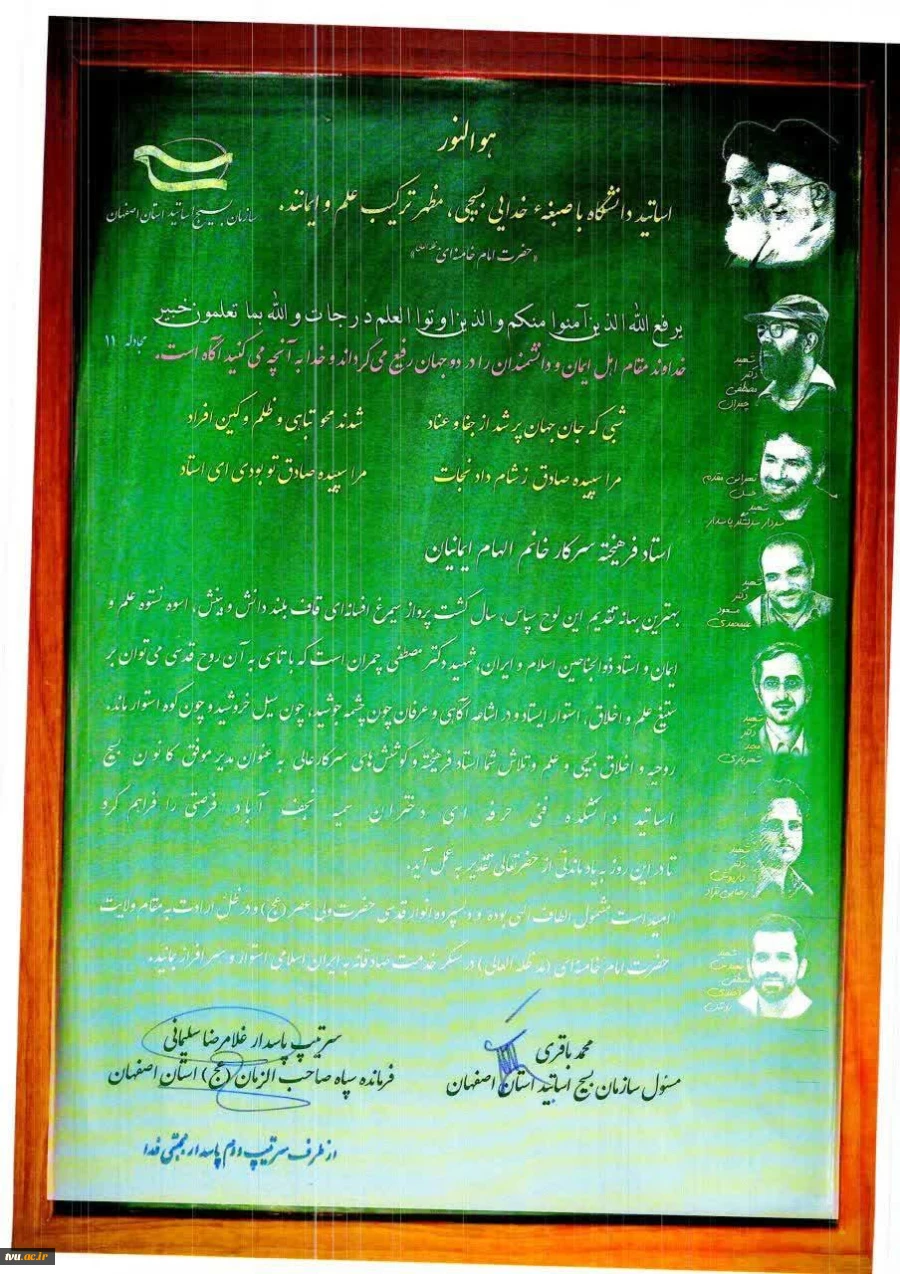 هو النور
سازمان بسیج اساتید استان اصفهان
اساتید دانشگاه با صبغهٔ خدایی بسیجی، مظهر ترکیب علم و ایمانند.
«حضرت امام خامنه‌ای مدظله العالی»
یرفع الله الذین آمنوا منکم والذین اوتوا العلم درجات والله بما تعلمون خبیر
خداوند مقام اهل ایمان و دانشمندان را در دو جهان رفیع می‌گرداند و خدا به آنچه می‌کنید آگاه است.
مجادله ۱۱
شبی که جان جهان پر شد از جفا و عناد شدند محو تباهی و ظلم و کین افراد
مرا سپیده صادق ز شام داد نجات مرا سپیده صادق تو بودی ای استاد
استاد فرهیخته سرکار خانم الهام ایمانیان
بهترین بهانه تقدیم این لوح سپاس، سال گشت پرواز سیمرغ افسانه‌ای قاف بلند دانش و بینش، اسوه نستوه علم و
ایمان و استاد ذوالجناحین اسلام و ایران، شهید دکتر مصطفی چمران است که با تاسی به آن روح قدسی می‌توان بر
ستیغ علم و اخلاق، استوار ایستاد و در اشاعه آگاهی و عرفان چون چشمه جوشید، چون سیل خروشید و چون کوه استوار ماند.
روحیه و اخلاق بسیجی و علم و تلاش شما استاد فرهیخته و کوشش‌های سرکارعالی به عنوان مدیر موفق کانون بسیج
اساتید دانشکده فنی حرفه ای دختران سمیه نجف آباد فرصتی را فراهم کرد
تا در این روز به یاد ماندنی از حضرتعالی تقدیر به عمل آید.
امید است مشمول الطاف الهی بوده و دلسپرده انوار قدسی حضرت ولی عصر (عج) و در ظل ارادت به مقام ولایت
حضرت امام خامنه‌ای (مد ظله العالی) در سنگر خدمت صادقانه به ایران اسلامی استوار و سرافراز بمانید.
شهید
دکتر
مصطفی
چمران
تهرانی مقدم
حسن
شهید
سردار سرلشکر پاسدار
شهید
دکتر
مسعود
علیمحمدی
شهید
دکتر
مجید
شهریاری
شهید
دکتر
داریوش
رضایی نژاد
شهید
مصطفی
احمدی
روشن
محمد باقری
مسئول سازمان بسیج اساتید استان اصفهان
سرتیپ پاسدار غلامرضا سلیمانی
فرمانده سپاه صاحب الزمان (عج) استان اصفهان
از طرف سرتیپ دوم پاسدار مجتبی فدا
tvu.ac.ir